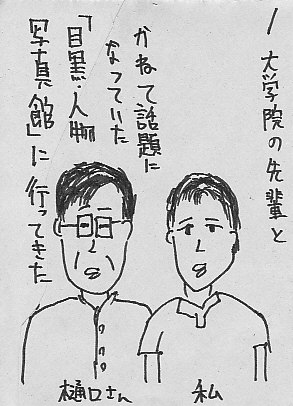 大学院の先輩と
かねて話題に
なっていた
「目黒・人物
写真館」に行ってきた
樋口さん
私